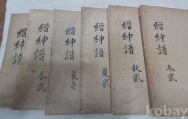 縉紳譜
縉紳譜 春貳
縉紳譜 夏壱
縉紳譜 夏貳
縉紳譜 秋貳
縉紳譜 冬貳
kobay